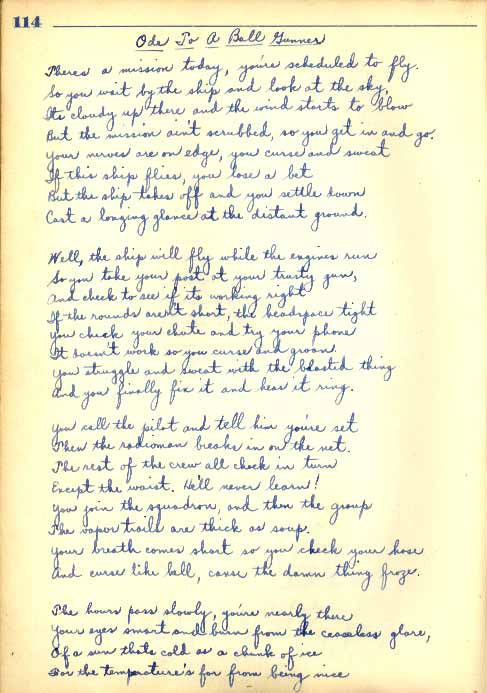 114
Ode To A Ball Gunner
Theres a mission today, you're scheduled to fly.
So you wait by the ship and look at the sky,
Its cloudy up there and the wind starts to blow
But the mission ain't scrubbed, so you get in and go.
Your nerves are on edge, you curse and sweat
If this ship flies, you lose a bet
But the ship takes off and you settle down
Cast a longing glance at the distant ground.
Well, the ship will fly while the engines run
So you take your post at your trusty gun,
And check to see if its working right
If the rounds aren't short, the headspace tight
You check your chute and try your phone
It doesn't work so you curse and groan.
You struggle and sweat with the blasted thing
And you finally fix it and hear it ring.
You call the pilot and tell him you're set
Then the radioman breaks in on the net.
The rest of the crew all check in turn
Except the waist. He'll never learn!
You join the squadron, and then the group
The vapor trails are thick as soup.
Your breath comes short so you check your hose
And curse like hell, cause the damn thing froze.
The hours pass slowly, you're nearly there
Your eyes smart and burn from the ceaseless glare,
Of a sun thats cold as a chunk of ice
For the temperature's far from being nice